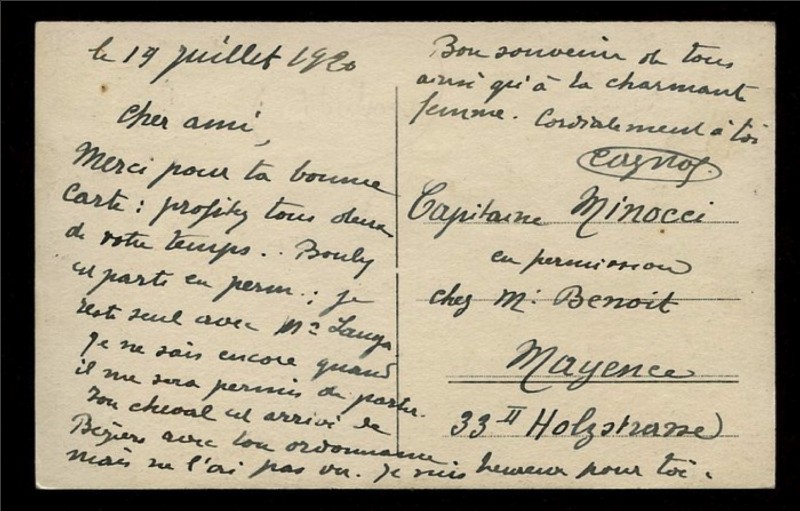 le 19 juillet 1920
Cher ami,
Merci pour ta bonne
carte ; profitez tous deux
de votre temps.. Bouly
est parti en perm. ; je
reste seul avec Mr
Je ne sais encore quand
il me sera permis de partir.
Ton cheval est arrivé de
Béziers avec ton ordonnance
mais ne l'ai pas vu. Je suis heureux pour toi.
Bon souvenir de tous
ainsi qu'à ta charmante
femme. Cordialement à toi
Capitaine Minocci
en permission
chez Mr Benoit
Mayence
33 II Holzstrasse